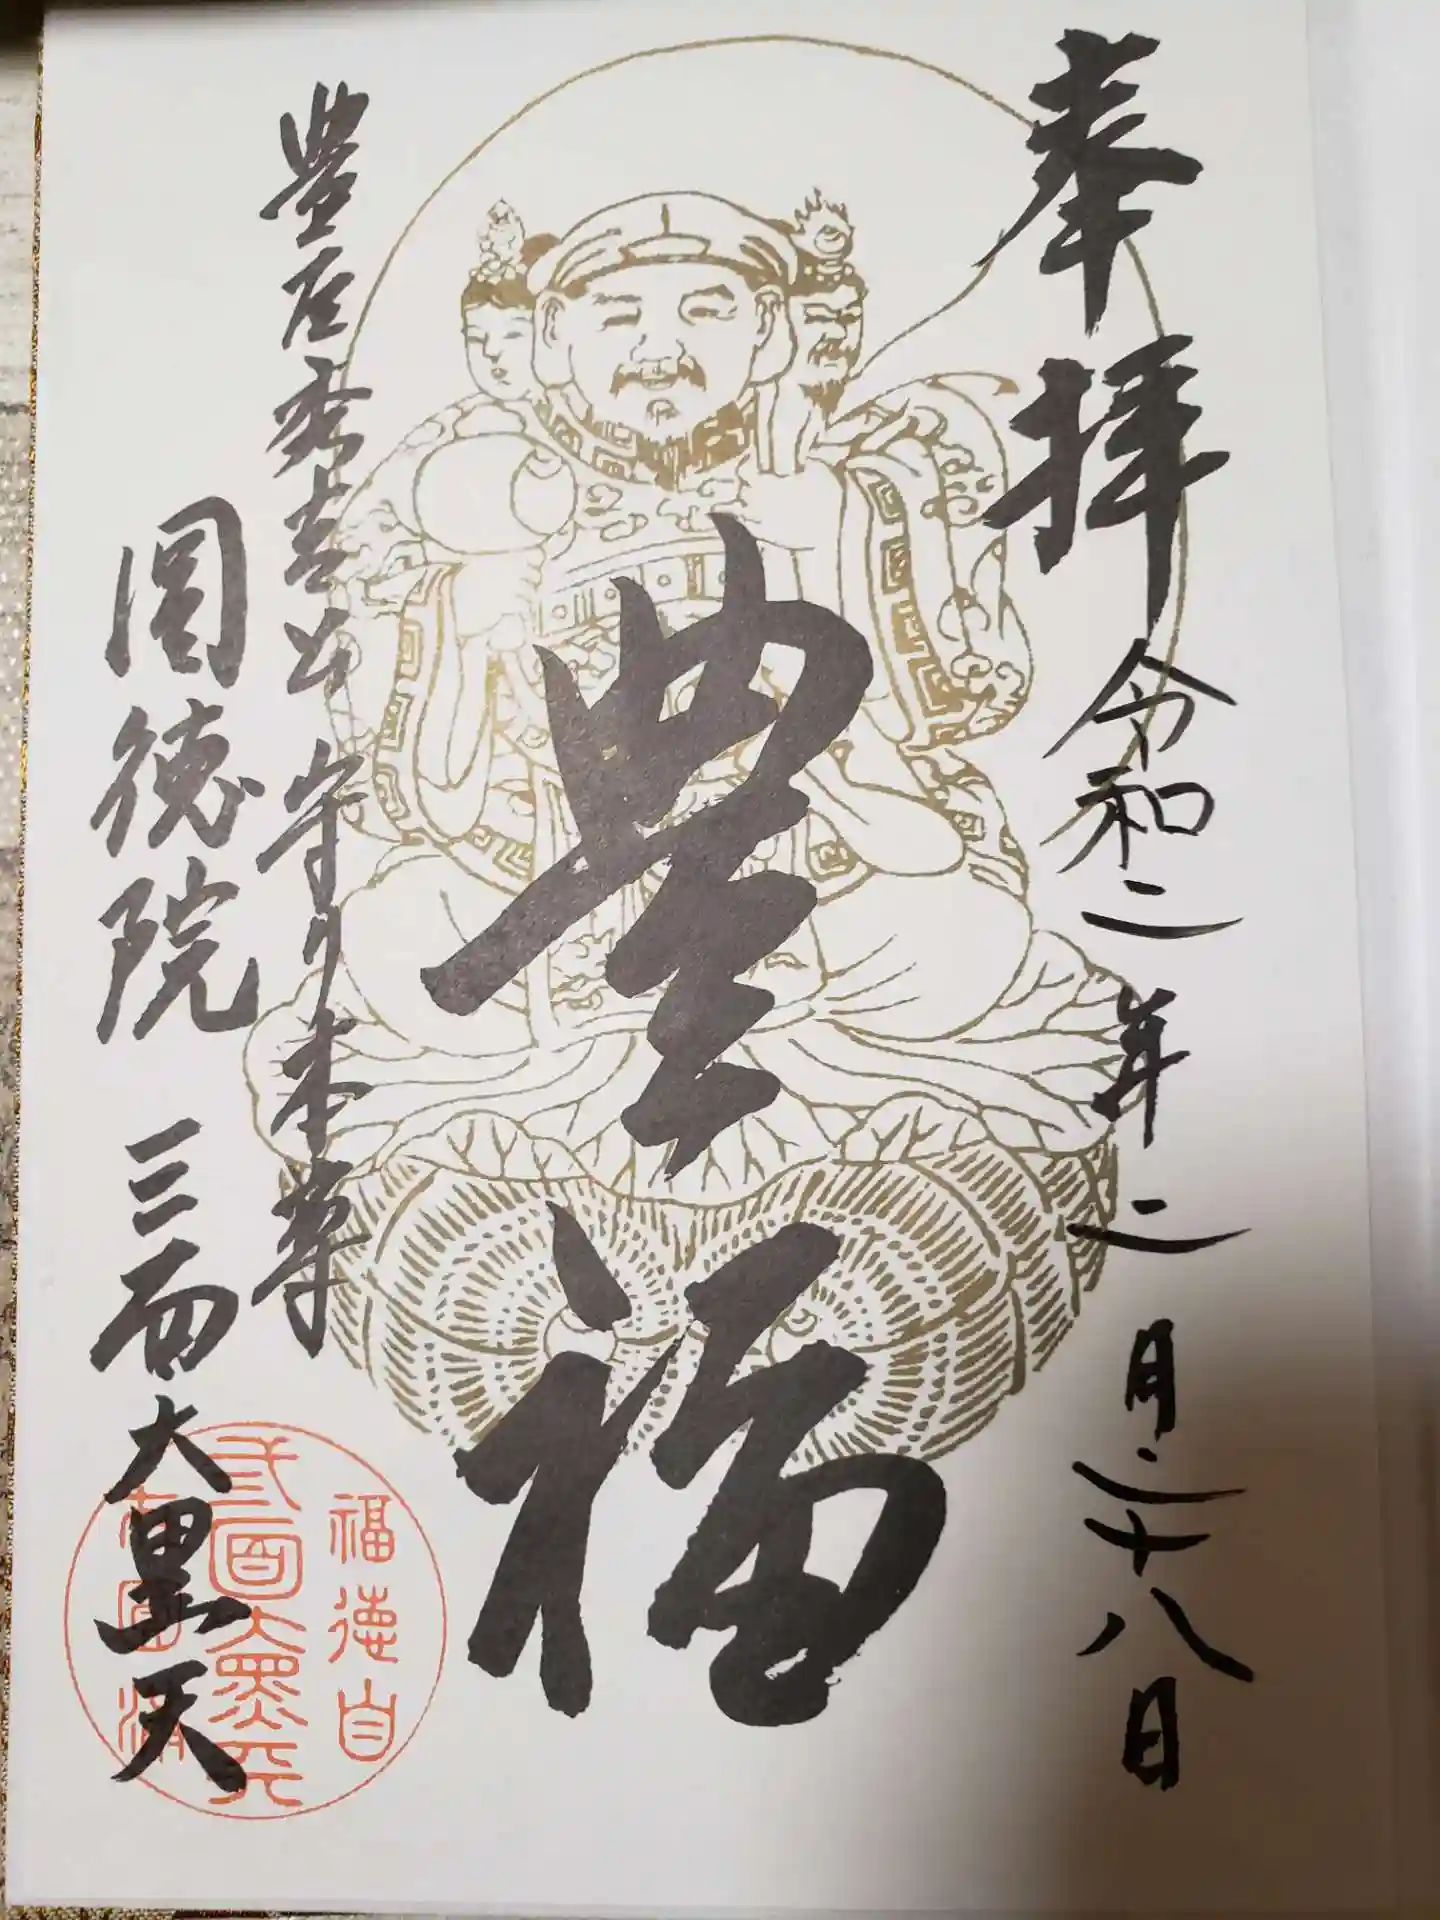 奉拝 令和二年二月二十八日
豊福
豊臣秀吉公 守り本尊
圓徳院 三面大黒天
福徳自
三面大黒天